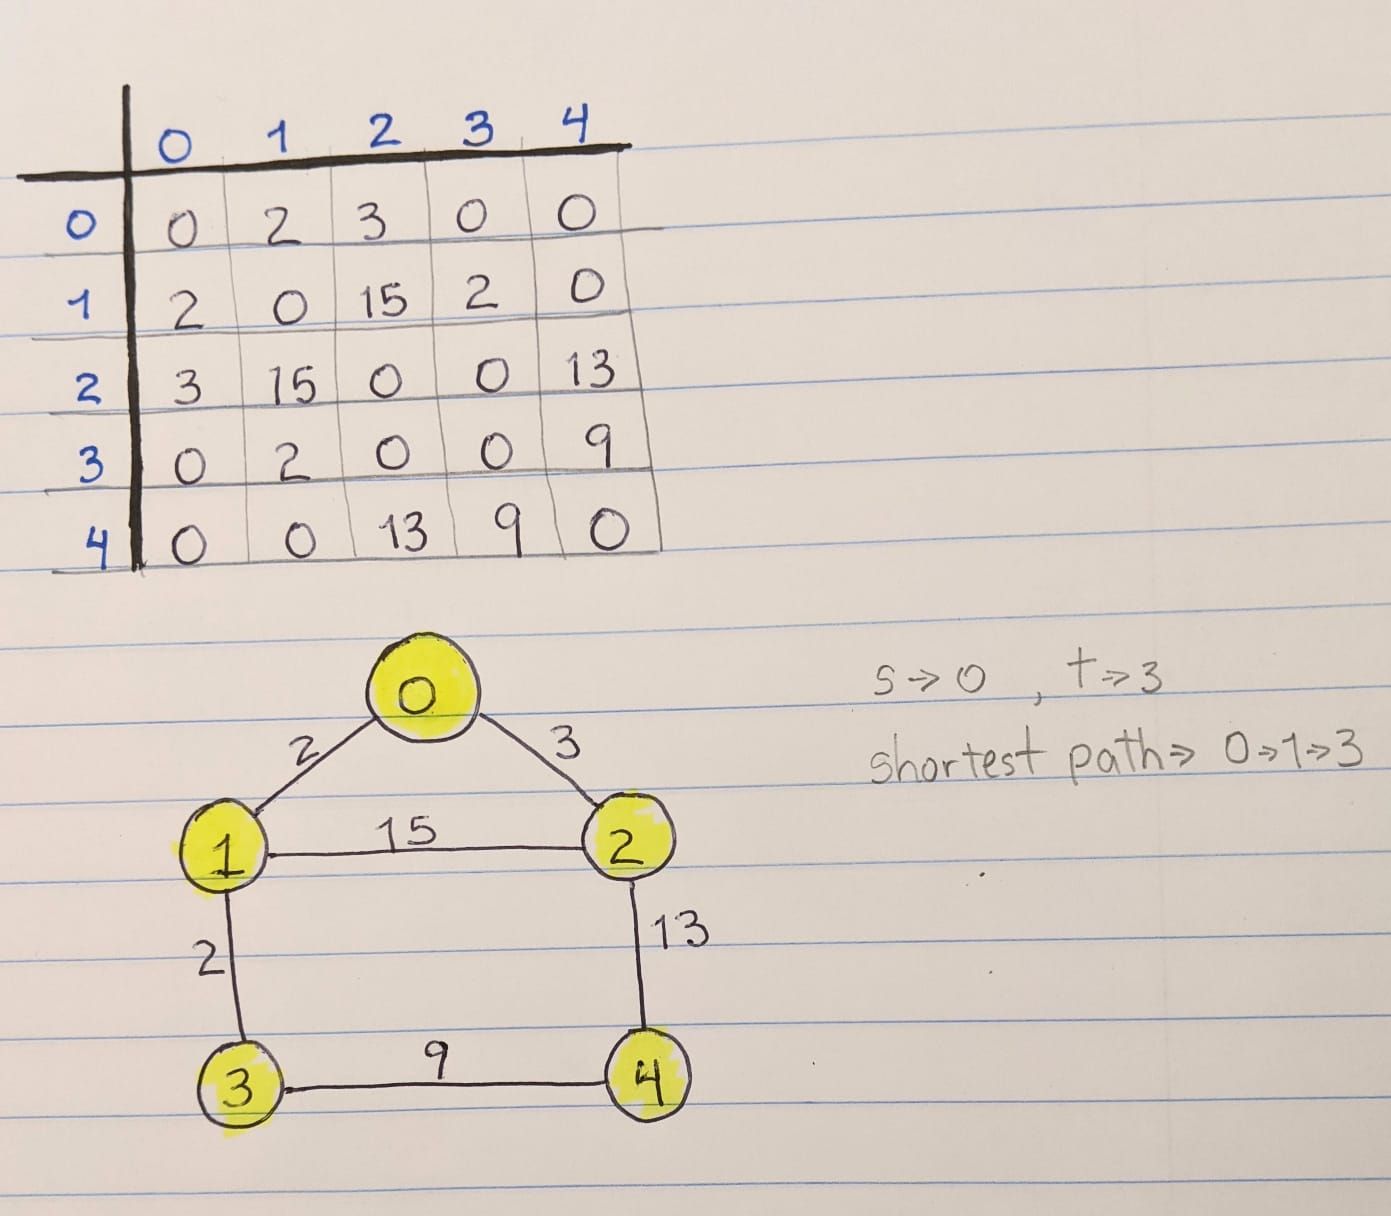 0 1 2 3 4
0 0 2 3 0 0
1 2 0 15 2 0
2 3 15 0 0 13
3 0 2 0 0 9
4 0 0 13 9 0
0
2 3
1 15 2
2 13
9
3 4
s→0 , t⇒3
shortest path⇒ 0⇒1⇒3